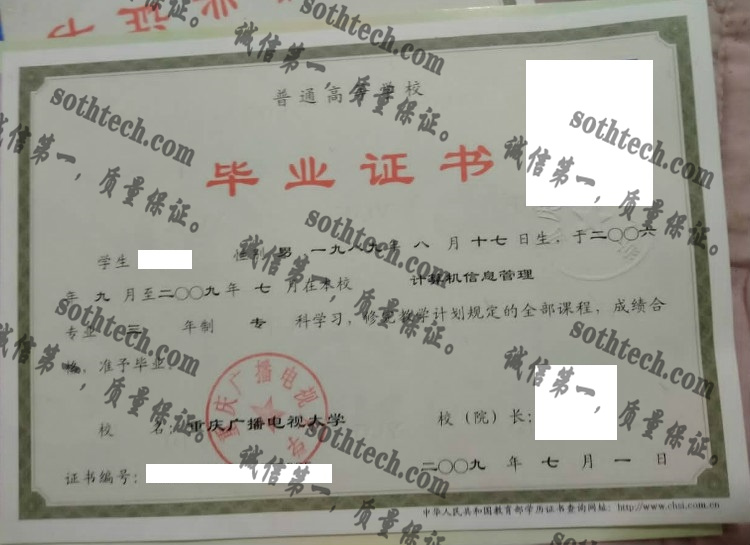 毕业证书
普通高等学校
毕业证书
学生 性别 男 一九八九年 八 月 十七 日生，于二〇〇六
年 九 月至二〇〇九年 七 月在本校 计算机信息管理
专业 三 年制 专 科学习，修完教学计划规定的全部课程，成绩合
格，准予毕业。
校 名：重庆广播电视大学
校（院）长：
重庆广播电视大学
证书编号：
二〇〇九 年 七 月 一 日
中华人民共和国教育部学历证书查询网址：http://www.chsi.com.cn
sothtech.com
诚信第一，质量保证。
sothtech.com
诚信第一，质量保证。
sothtech.com
诚信第一，质量保证。
sothtech.com
诚信第一，质量保证。
sothtech.com
诚信第一，质量保证。
sothtech.com
诚信第一，质量保证。
sothtech.com
诚信第一，质量保证。
sothtech.com
诚信第一，质量保证。
sothtech.com
诚信第一，质量保证。